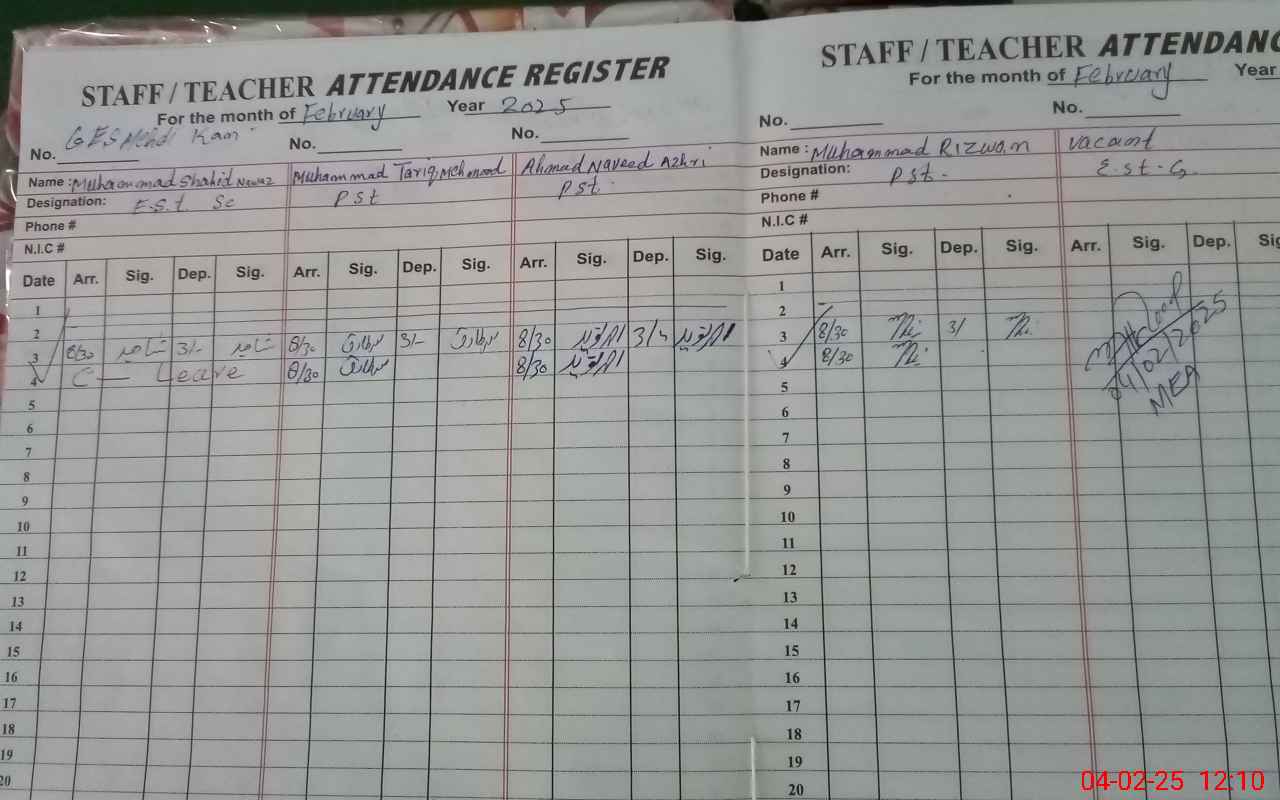 STAFF / TEACHER ATTENDANCE REGISTER
For the month of February Year 2025
GES Mehdi
No. No. No.
Name : Muhammad Shahid Nawaz Muhammad Tariq Mehmood Ahmad Naveed Azhri
Designation: E.S.t. Sc Pst Pst.
Phone #
N.I.C #
Date Arr. Sig. Dep. Sig. Arr. Sig. Dep. Sig. Arr. Sig. Dep. Sig.
1
2
3 8/30 شاہد 3/- شاہد 8/30 3/- 8/30 3/-
4 C — Leave 8/30 8/30
5
6
7
8
9
10
11
12
13
14
15
16
17
18
19
20
STAFF / TEACHER ATTENDANC
For the month of February Year
No. No.
Name : Muhammad Rizwan Vacant
Designation: Pst. E.st-G
Phone #
N.I.C #
Date Arr. Sig. Dep. Sig. Arr. Sig. Dep.
1
2
3 8/30 3/
4 8/30
04/02/2025
MEA
5
6
7
8
9
10
11
12
13
14
15
16
17
18
19
20
04-02-25 12:10